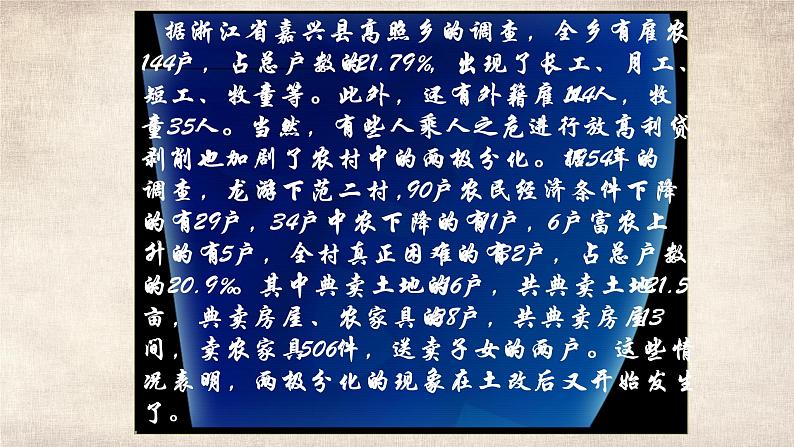 据浙江省嘉兴县高照乡的调查，全乡有雇农
144户，占总户数的21.79%，出现了长工、月工、
短工、牧童等。此外，还有外籍雇工44人，牧
童35人。当然，有些人乘人之危进行放高利贷
剥削也加剧了农村中的两极分化。据54年的
调查，龙游下范二村,90户农民经济条件下降
的有29户，34户中农下降的有11户，6户富农上
升的有5户，全村真正困难的有32户，占总户数
的20.9%。其中典卖土地的6户，共典卖土地21.5
亩，典卖房屋、农家具的8户，共典卖房屋13
间，卖农家具506件，送卖子女的两户。这些情
况表明，两极分化的现象在土改后又开始发生
了。